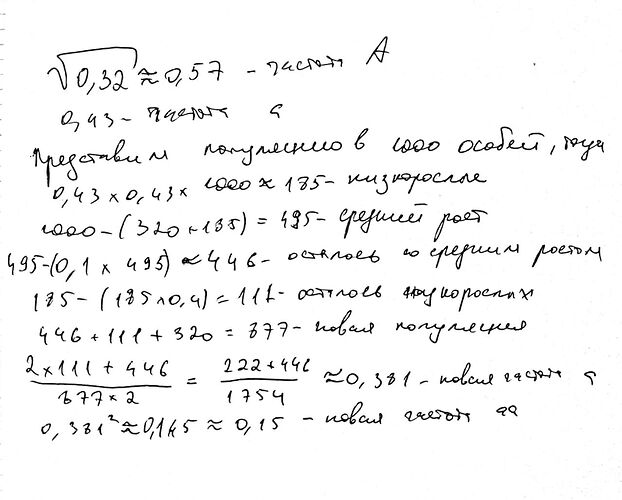 √0,32 ≈ 0,57 - частота A
0,43 - частота a
Представим популяцию в 1000 особей, тогда
0,43 × 0,43 × 1000 ≈ 185 - низкорослые
1000 - (320 + 185) = 495 - средний рост
495-(0,1 × 495) ≈ 446 - осталось со средним ростом
185 - (185 × 0,4) = 111 - осталось низкорослых
446 + 111 + 320 = 877 - новая популяция
(2×111 + 446)/(877×2) = (222+446)/1754 ≈ 0,381 - новая частота a
0,381² ≈ 0,145 ≈ 0,15 - новая частота aa